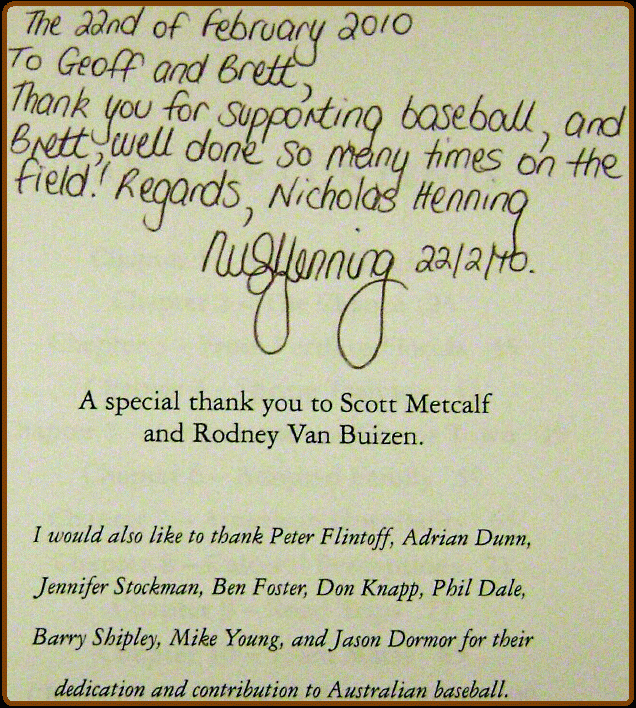 The 22nd of February 2010
To Geoff and Brett,
Thank you for supporting baseball, and
Brett, well done so many times on the
field! Regards, Nicholas Henning
Henning 22/2/10.
A special thank you to Scott Metcalf
and Rodney Van Buizen.
I would also like to thank Peter Flintoff, Adrian Dunn,
Jennifer Stockman, Ben Foster, Don Knapp, Phil Dale,
Barry Shipley, Mike Young, and Jason Dormor for their
dedication and contribution to Australian baseball.